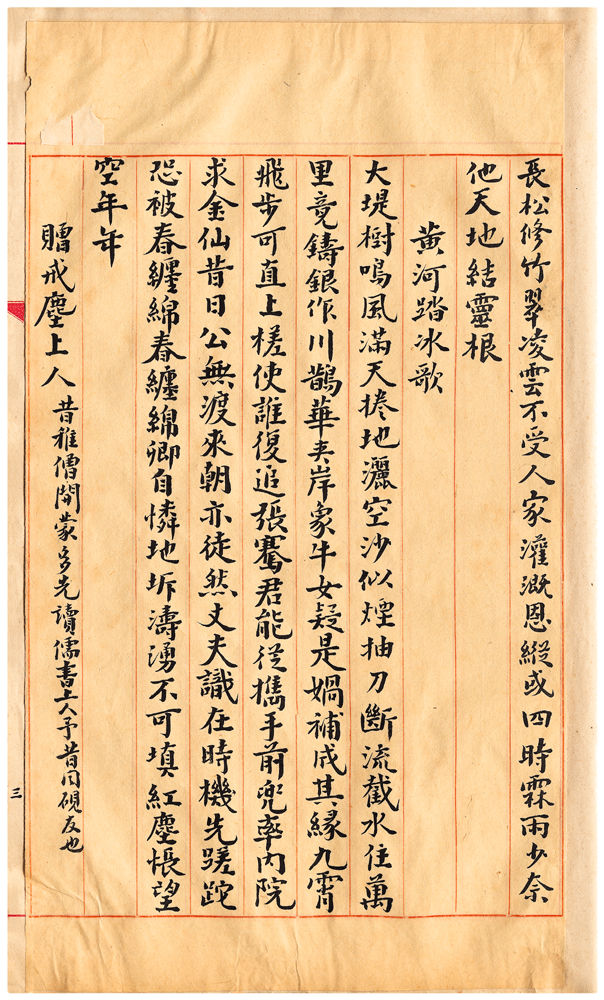 長松修竹翠凌雲不受人家灌溉恩縱或四時霖雨少奈
他天地結靈根
黃河踏冰歌
大堤樹鳴風滿天捲地灑空沙似煙抽刀斷流截水住萬
里竟鑄銀作川鵲華夾岸象牛女疑是媧補成其緣九霄
飛步可直上槎使誰復追張騫君能從攜手前兜率內院
求金仙昔日公無渡來朝亦徒然丈夫識在時機先蹉跎
恐被春纏綿春纏綿卿自憐地坼濤湧不可填紅塵悵望
空年年
贈戒塵上人昔稚僧開蒙多先讀儒書上人予昔同硯友也
三